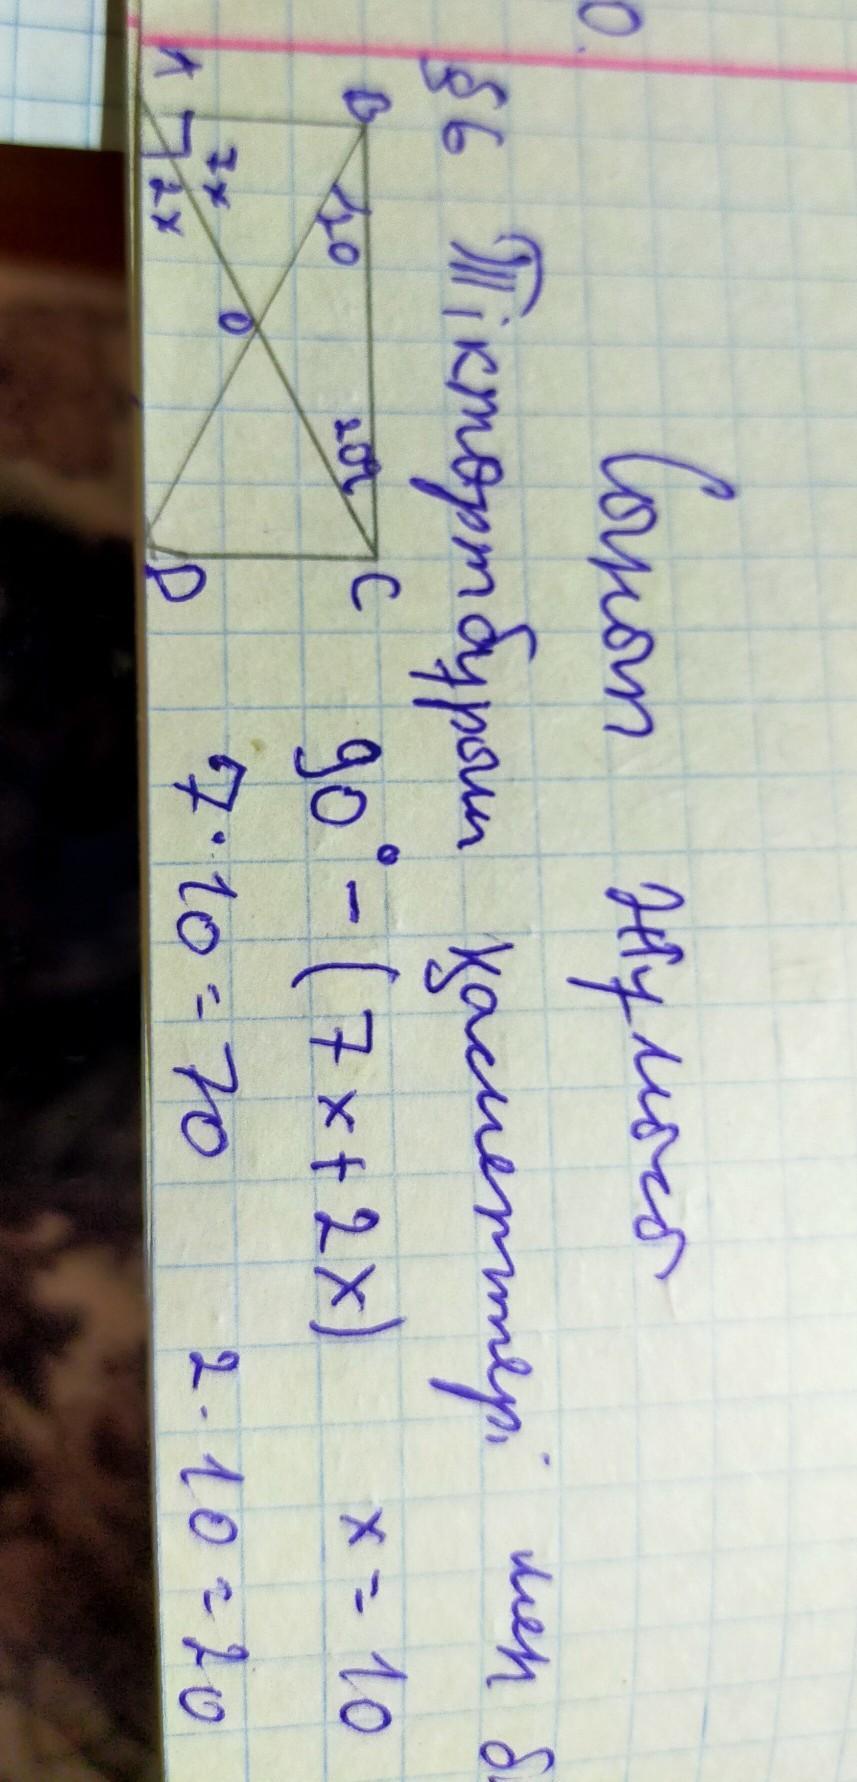 0.
Сынып жұмысы
§6 Тіктөртбұрыш қасиеттері мен
B C
120 20
7x
2x
O
A D
90° - (7x + 2x) x = 10
7 · 10 = 70 2 · 10 = 20